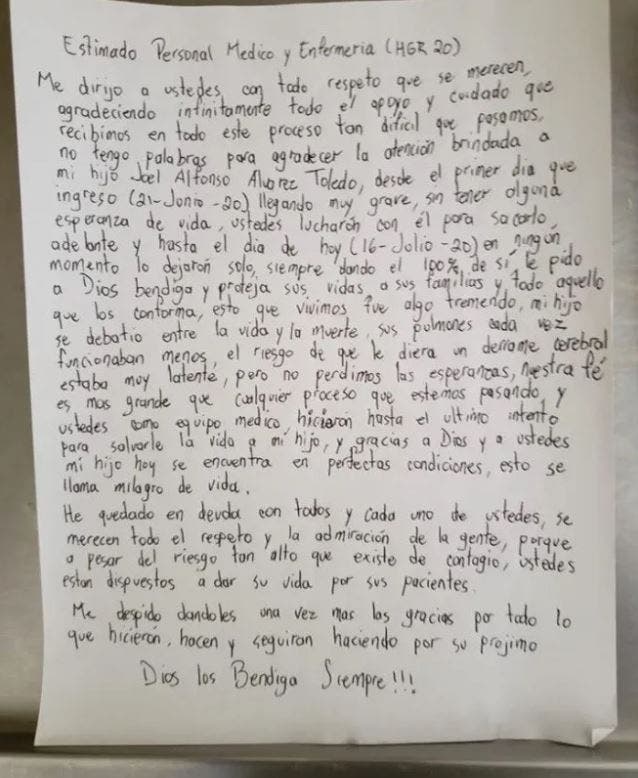 Estimado Personal Medico y Enfermeria (HGR 20)
Me dirijo a ustedes, con todo respeto que se merecen,
agradeciendo infinitamente todo el apoyo y cuidado que
recibimos en todo este proceso tan dificil que pasamos,
no tengo palabras para agradecer la atención brindada a
mi hijo Joel Alfonso Alvarez Toledo, desde el primer dia que
ingreso (21-Junio-20) llegando muy grave, sin tener alguna
esperanza de vida, ustedes lucharón con él para sacarlo
adelante y hasta el dia de hoy (16-Julio-20) en ningún
momento lo dejarón solo, siempre dando el 100% de sí, le pido
a Dios bendiga y proteja sus vidas a sus familias y todo aquello
que los conforma, esto que vivimos fue algo tremendo, mi hijo
se debatio entre la vida y la muerte, sus pulmones cada vez
funcionaban menos, el riesgo de que le diera un derrame cerebral
estaba muy latente, pero no perdimos las esperanzas, nuestra fé
es mas grande que cualquier proceso que estemos pasando, y
ustedes como equipo medico, hicierón hasta el ultimo intento
para salvarle la vida a mi hijo, y gracias a Dios y a ustedes
mi hijo hoy se encuentra en perfectas condiciones, esto se
llama milagro de vida.
He quedado en deuda con todos y cada uno de ustedes, se
merecen todo el respeto y la admiración de la gente, porque
a pesar del riesgo tan alto que existe de contagio, ustedes
estan dispuestos a dar su vida por sus pacientes.
Me despido dandoles una vez mas las gracias por todo lo
que hicierón, hacen y seguiran haciendo por su projimo
Dios los Bendiga Siempre!!!